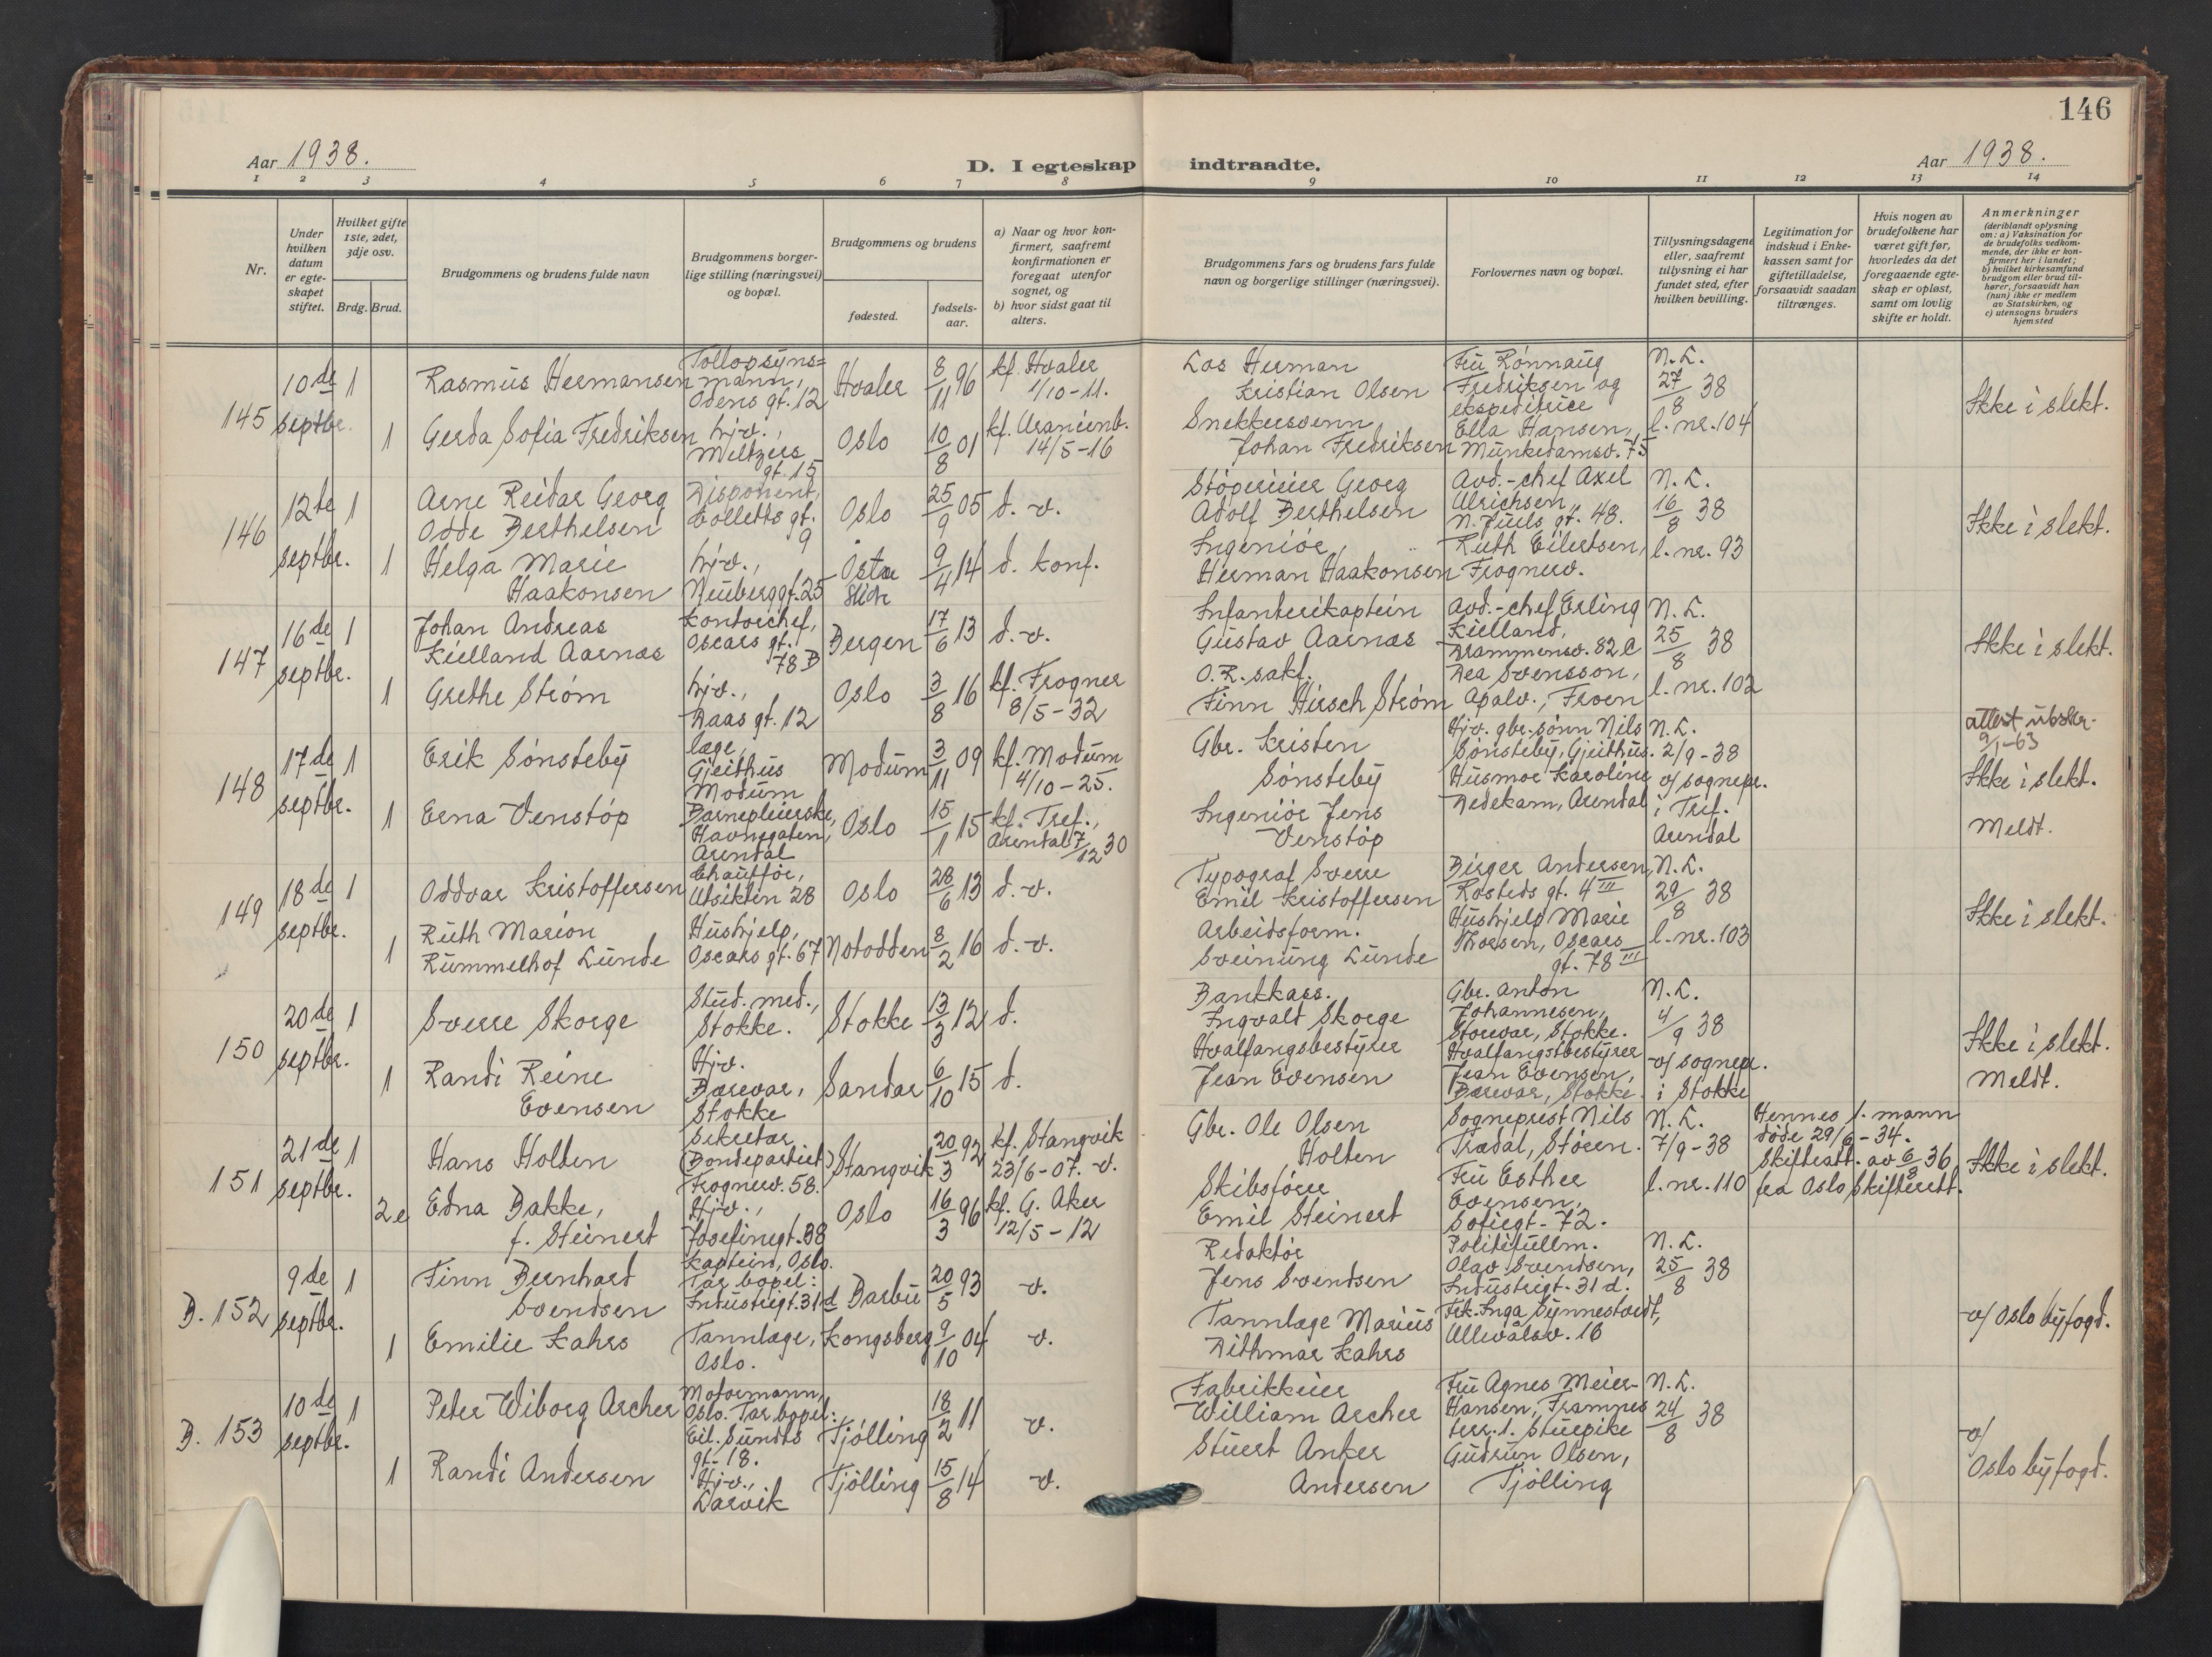 146
Aar 1938.
D. I egteskap indtraadte.
Aar 1938.
1 2 3 4 5 6 7 8 9 10 11 12 13 14
Nr.
Under hvilken datum er egteskapet stiftet.
Hvilket gifte 1ste, 2det, 3dje osv.
Brdg. Brud.
Brudgommens og brudens fulde navn
Brudgommens borgerlige stilling (næringsvei) og bopæl.
Brudgommens og brudens
fødested.
fødselsaar.
a) Naar og hvor konfirmert, saafremt konfirmationen er foregaat utenfor sognet, og
b) hvor sidst gaat til alters.
Brudgommens fars og brudens fars fulde navn og borgerlige stillinger (næringsvei).
Forlovernes navn og bopæl.
Tillysningsdagene eller, saafremt tillysning ei har fundet sted, efter hvilken bevilling.
Legitimation for indskud i Enkekassen samt for giftetilladelse, forsaavidt saadan tiltrænges.
Hvis nogen av brudefolkene har været gift før, hvorledes da det foregaaende egteskap er opløst, samt om lovlig skifte er holdt.
Anmerkninger
(deriblandt oplysning om: a) Vaksination for de brudefolks vedkommende, der ikke er konfirmert her i landet; b) hvilket kirkesamfund brudgom eller brud tilhører, forsaavidt han (hun) ikke er medlem av Statskirken, og c) utensogns bruders hjemsted
145
10de septbr.
1
Rasmus Hermansen
Tollopsyns=
mann,
Odens gt. 12
Hvaler
8/11 96
kf. Hvaler
1/10-11.
Los Herman
Kristian Olsen
Fru Rønnaug
Fredriksen og
ekspeditrice
Ella Hansen,
Munkedamsv. 75
N. L.
27/8 38
l. nr. 104
Ikke i slekt.
1
Gerda Sofia Fredriksen
hjv.,
Meltzers
gt. 15
Oslo
10/8 01
kf. Uranienb.
14/5-16
Snekkersvenn
Johan Fredriksen
146
12te septbr.
1
Arne Reidar Georg
Odde Berthelsen
Disponent,
Colletts gt.
9
Oslo
25/9 05
d. v.
Støperieier Georg
Adolf Berthelsen
Avd.-chef Axel
Ulrichsen,
N. Juels gt. 48.
Ruth Eilertsen,
Frognerv.
N. L.
16/8 38
l. nr. 93
Ikke i slekt.
1
Helga Marie
Haakonsen
hjv.,
Neuberggt. 25
Østre
Slidre
9/4 14
d. konf.
Ingeniør,
Herman Haakonsen
147
16de septbr.
1
Johan Andreas
Kielland Aarnæs
Kontorchef,
Oscars gt.
78 B
Bergen
17/6 13
d. v.
Infanterikaptein
Gustav Aarnæs
Avd.-chef Erling
Kielland,
Drammensv. 82 C
Dea Svensson,
Apalv., Frøen
N. L.
25/8 38
l. nr. 102
Ikke i slekt.
1
Grethe Strøm
hjv.,
Daas gt. 12
Oslo
3/8 16
kf. Frogner
8/5-32
O.R. sakf.
Finn Hirsch Strøm
148
17de septbr.
1
Erik Sønsteby
læge,
Gjeithus
Modum
Modum
3/11 09
kf. Modum
4/10-25.
Gbr. Kristen
Sønsteby
Hjv. gbr.sønn Nils
Sønsteby, Gjeithus.
Husmor Karoline
Dedekam, Arendal
N. L.
2/9-38
v/ sognepr.
i Tref.
Arendal
attest utskr.
9/1-63
Ikke i slekt.
Meldt.
1
Erna Venstøp
Barnepleierske,
Havnegaten,
Arendal
Oslo
15/1 15
kf. Tref.,
Arendal 7/12 30
Ingeniør Jens
Venstøp
149
18de septbr.
1
Oddvar Kristoffersen
Chauffør,
Utsikten 28
Oslo
28/6 13
d. v.
Typograf Sverre
Emil Kristoffersen
Birger Andersen,
Rosteds gt. 4 III
Hushjelp Marie
Thorsen, Oscars
gt. 78 III
N. L.
29/8 38
l. nr. 103
Ikke i slekt.
1
Ruth Marion
Rummelhof Lunde
Hushjelp,
Oscars gt. 67
Notodden
8/2 16
d. v.
Arbeidsform.
Sveinung Lunde
150
20de septbr.
1
Sverre Skorge
Stud. med.,
Stokke.
Stokke
13/3 12
d.
Bankkass.
Ingvald Skorge
Gbr. Anton
Johannesen,
Storevar, Stokke.
Hvalfangstbestyrer
Jean Evensen,
Borevar, Stokke.
N. L.
4/9 38
v/ sognepr.
i Stokke
Ikke i slekt.
Meldt.
1
Randi Reine
Evensen
Hjv.
Borevar,
Stokke
Sandar
6/10 15
d.
Hvalfangsbestyrer
Jean Evensen
151
21de septbr.
1
Hans Holten
Sekretær
(Bondepartiet)
Frognerv. 58.
Stangvik
20/3 92
kf. Stangvik
23/6-07. v.
Gbr. Ole Olsen
Holten
Sogneprest Nils
Trædal, Støren.
Fru Esther
Evensen,
Sofiegt. 72.
N. L.
7/9-38
l. nr. 110
Hennes 1. mann
døde 29/6-34.
Skifteatt. av 6/8 36
fra Oslo Skifterett.
Ikke i slekt.
2e
Edna Bakke,
f. Steinert
Hjv.,
Josefinegt. 38
Oslo
16/3 96
kf. G. Aker
12/5-12
Skibsfører
Emil Steinert
B. 152
9de septbr.
1
Finn Bernhard
Svendsen
Kaptein, Oslo.
Tar bopel:
Industrigt. 31 d
Barbu
20/5 93
v.
Redaktør
Jens Svendsen
Politifullm.
Olav Svendsen,
Industrigt. 31 d.
Frk. Inga Synnestvedt,
Ullevålsv. 16
N. L.
25/8 38
v/ Oslo byfogd.
1
Emilie Kahrs
Tannlæge,
Oslo.
Kongsberg
9/10 04
v.
Tannlæge Marius
Dithmar Kahrs
B. 153
10de septbr.
1
Peter Wiborg Archer
Motormann,
Oslo. Tar bopel:
Eil. Sundts
gt. 18.
Tjølling
18/2 11
v.
Fabrikkeier
William Archer
Fru Agnes Meier-
Hansen, Framnes
terr. 1. Stuepike
Gudrun Olsen,
Tjølling
N. L.
24/8 38
v/
Oslo byfogd.
1
Randi Andersen
Hjv.,
Larvik
Tjølling
15/8 14
v.
Stuert Anker
Andersen